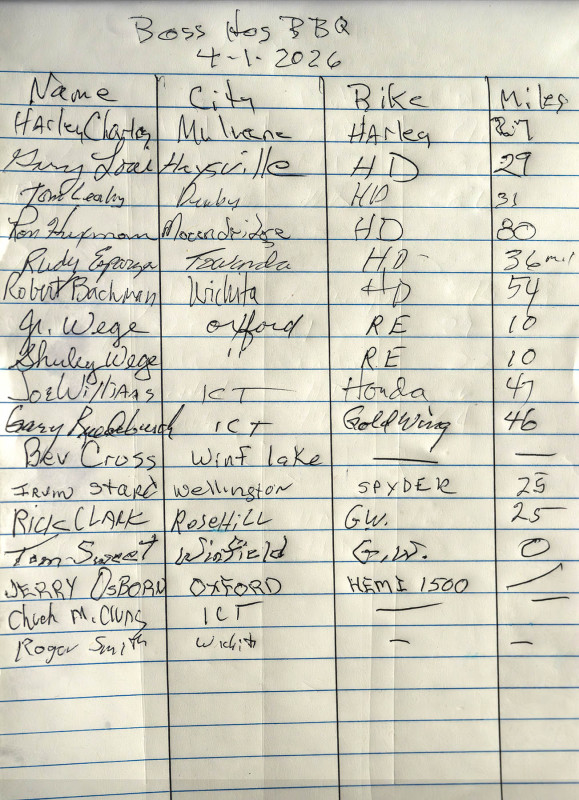 Boss Hog BBQ
4-1-2026
Name City Bike Miles
Harley Charley Mulvane Harley 27
Gary Haysville HD 29
Tom Leahy Derby HD 31
Ron Hufman Moundridge HD 80
Rudy Esparza Towanda HD - 36 mil
Robert Bachman Wichita HD 54
Jr. Wege Oxford RE 10
Shirley Wege " RE 10
Joe Williams ICT Honda 47
Gary ICT GoldWing 46
Bev Cross Winf lake — —
Stard Wellington SPYDER 25
RICK CLARK ROSEHILL G.W. 25
Tom Sweet Winfield G.W. 0
JERRY OSBORN OXFORD HEMI 1500 —
Chuck M.Clung ICT — —
Roger Smith Wichit — —